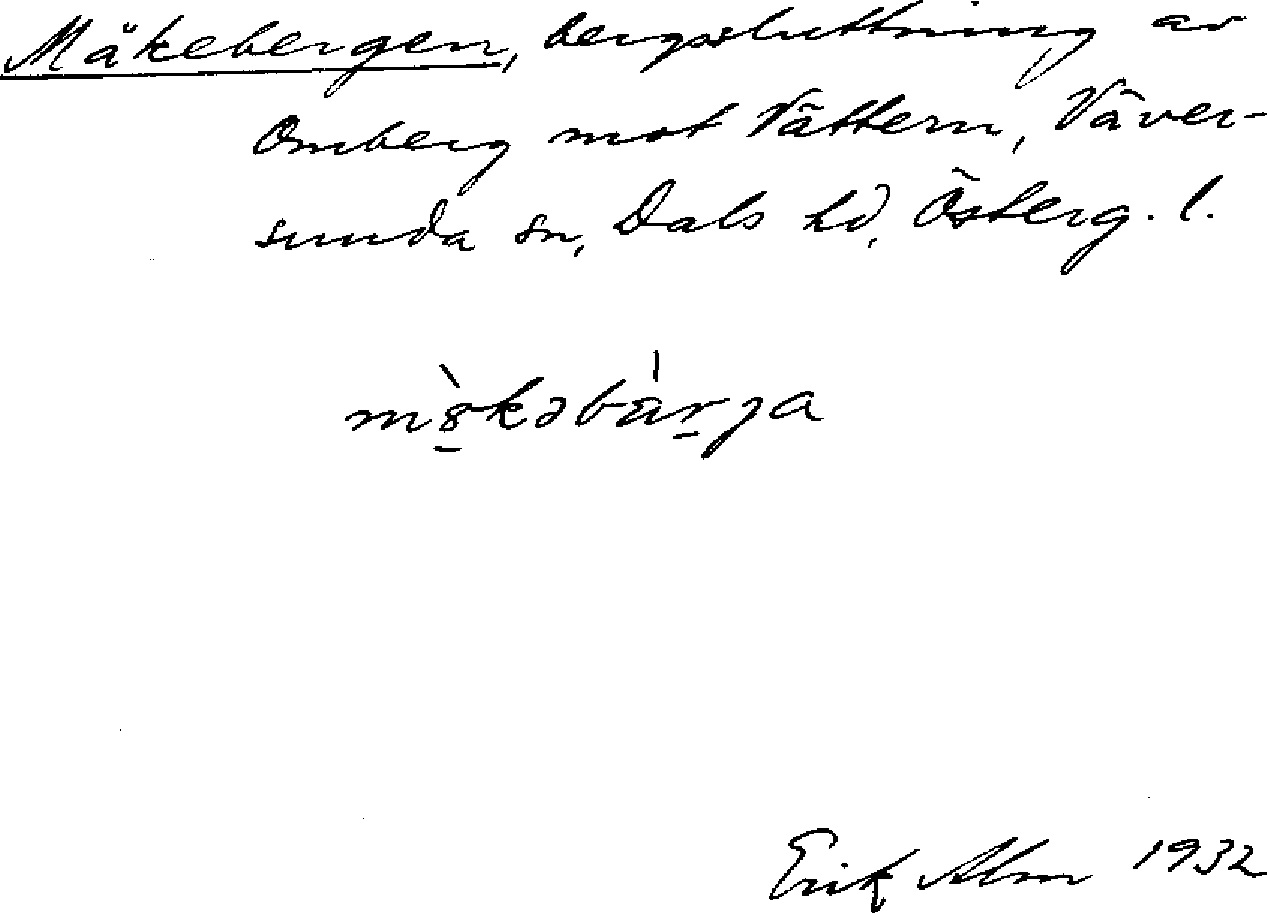 Mäkebergen, bergssluttning av
Omberg mot Vättern, Väver-
sunda sn, Dals hd, Österg. l.
Erik Alm 1932